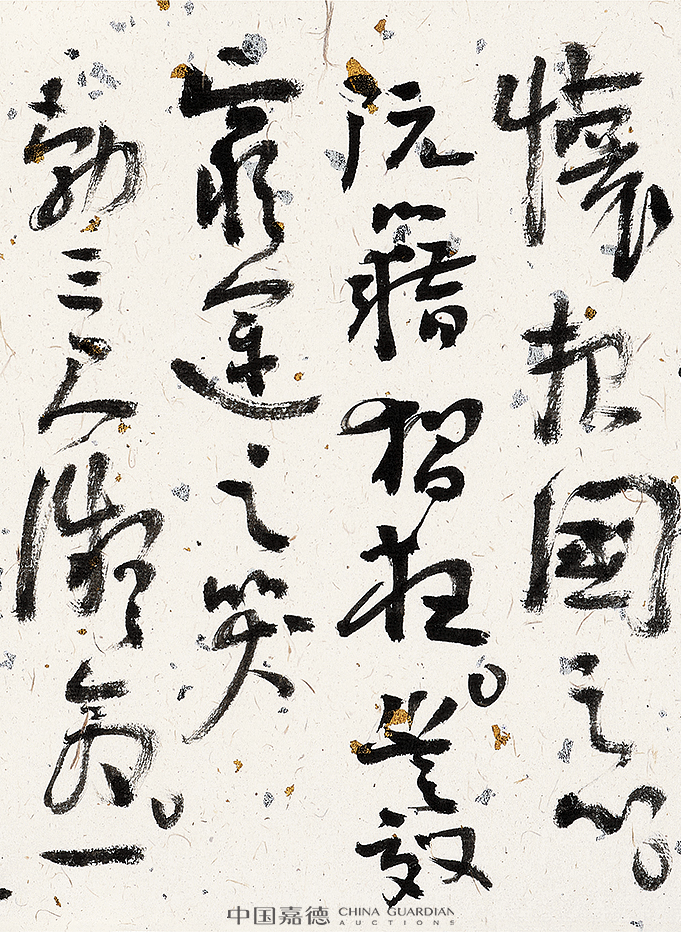 懷報國之心。
阮籍猖狂。豈效
窮途之哭
勃三尺微命。一
中国嘉德 CHINA GUARDIAN
AUCTIONS